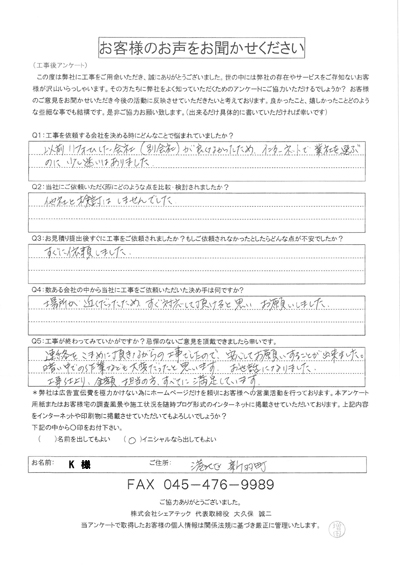 お客様のお声をお聞かせください
（工事後アンケート）
この度は弊社に工事をご用命いただき、誠にありがとうございました。世の中には弊社の存在やサービスをご存知ないお客
様が沢山いらっしゃいます。その方たちに弊社をよく知っていただくためのアンケートにご協力いただけるでしょうか？ お客
様のご意見をお聞かせいただき今後の活動に反映させていただきたいと考えております。良かったこと、嬉しかったことどのよう
な些細な事でも結構です、是非ご協力お願いします。（出来るだけ具体的に書いていただければ幸いです）
Q1：工事を依頼する会社を決める時にどんなことで悩まれていましたか？
以前リフォームした会社（別会社）が良くなかったため、インターネットで業者を選ぶ
のに少し迷いはありました
Q2：当社にご依頼いただく際にどのような点を比較・検討されましたか？
他社と検討はしませんでした
Q3：お見積り提出後すぐに工事をご依頼されましたか？もしご依頼されなかったとしたらどんな点が不安でしたか？
すぐに依頼しました
Q4：数ある会社の中から当社に工事をご依頼いただいた決め手は何ですか？
場所が近くだったため すぐ対応して頂けると思い お願いしました。
Q5：工事が終わってみていかがですか？忌憚のないご意見を頂戴できましたら幸いです。
連絡をこまめに頂きながらの工事でしたので、安心してお願いすることが出来ました。
暗い中での作業なども大変だったと思います。お世話になりました。
工事仕上り、金額、担当の方、すべてに満足しています。
＊弊社は広告宣伝費を極力かけない為にホームページだけを頼りにお客様への営業活動を行っております。本アンケート
用紙またはお客様宅の調査風景や施工状況を随時ブログ形式のインターネットに掲載させていただいております。上記内容
をインターネットや印刷物に掲載させていただいてもよろしいでしょうか？
下記の中から〇印をお付下さい。
（ ）名前を出してもよい （〇）イニシャルなら出してもよい
お名前： K 様 ご住所： 港北区 新羽町
FAX 045-476-9989
ご協力ありがとうございました。
株式会社シェアテック 代表取締役 大久保 誠二
当アンケートで取得したお客様の個人情報は関係法規に基づき厳正に管理いたします。